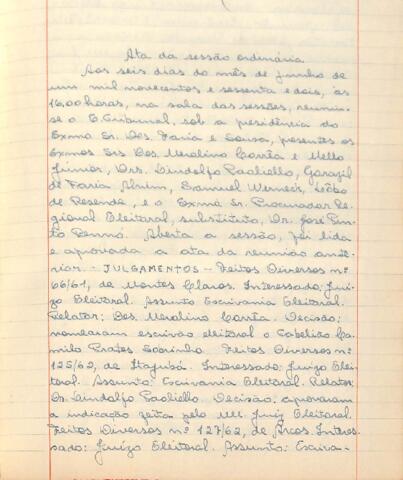 Ata da sessão ordinária
Aos seis dias do mês de junho de
um mil novecentos e sessenta e dois, às
16,00 horas, na sala das sessões, reuniu-
se o E. Tribunal, sob a presidência do
Exmo Sr. Des. Faria e Sousa, presentes os
Exmos Srs. Des. Merolino Corrêa e Mello
Júnior, Drs. Lindolfo Paoliello,
de Faria Alvim, Samuel Werneck, Lôbo
de Resende, e o Exmo Sr. Procurador Re-
gional Eleitoral, substituto, Dr. José Pin-
to Renó. Aberta a sessão, foi lida
e aprovada a ata da reunião ante-
rior. - JULGAMENTOS - Feitos Diversos nº
66/61, de Montes Claros. Interessado: Juí-
zo Eleitoral. Assunto: Escrivania Eleitoral.
Relator: Des. Merolino Corrêa. Decisão:
nomearam escrivão eleitoral o Tabelião Ca-
milo Prates Sobrinho. Feitos Diversos nº
125/62, de Itajubá. Interessado: Juízo Elei-
toral. Assunto: Escrivania Eleitoral. Relator:
Dr. Lindolfo Paoliello. Decisão: aprovaram
a indicação feita pelo MM. Juiz Eleitoral.
Feitos Diversos nº 127/62, de Arcos. Interes-
sado: Juízo Eleitoral. Assunto: Escriva-